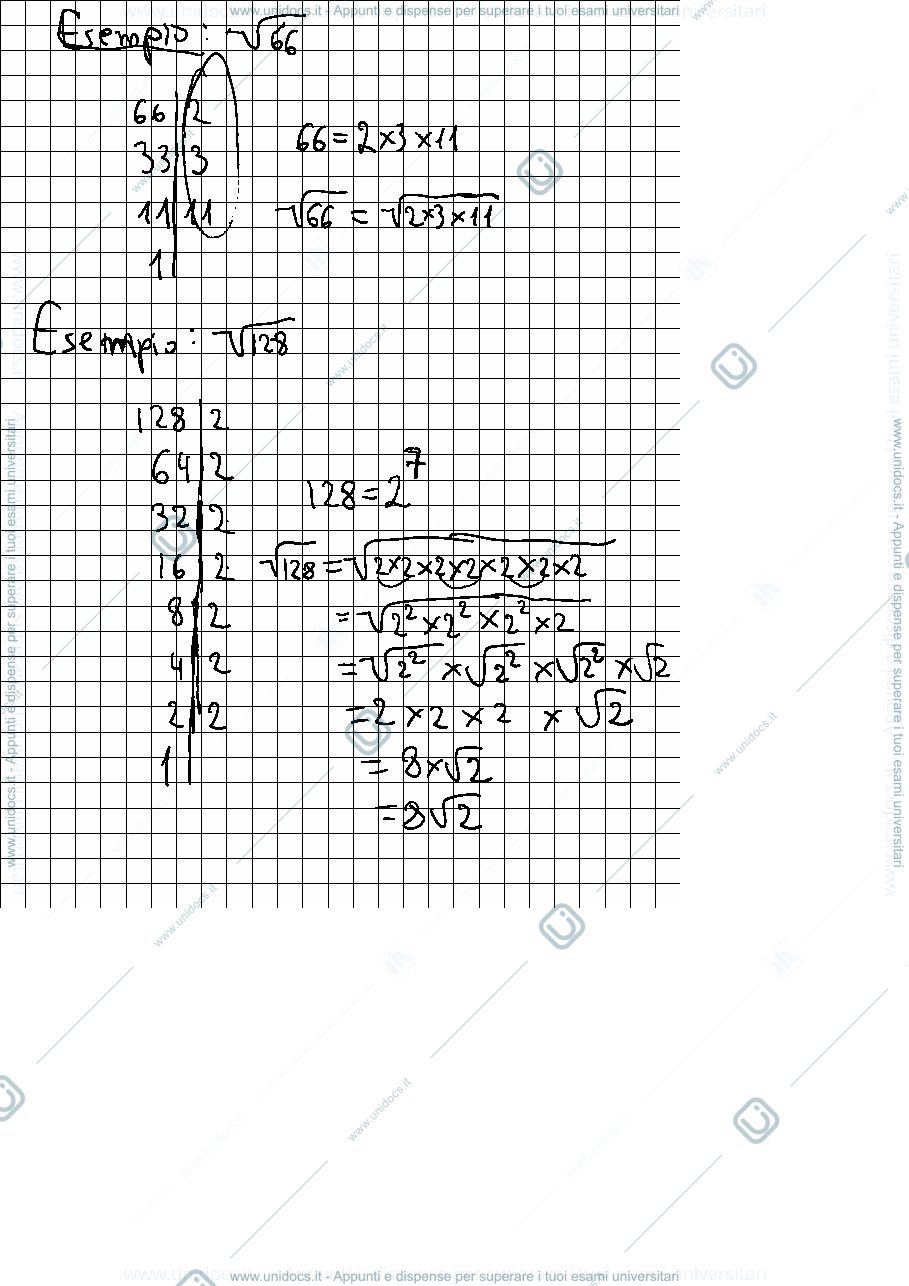 www.unidocs.it - Appunti e dispense per superare i tuoi esami universitari
Esempio: √66
66 | 2
33 | 3
11 | 11
1
66 = 2×3×11
√66 = √2×3×11
Esempio: √128
128 | 2
64 | 2
32 | 2
16 | 2
8 | 2
4 | 2
2 | 2
1
128 = 2⁷
√128 = √2×2×2×2×2×2×2
= √2²×2²×2²×2
= √2² × √2² × √2² × √2
= 2 × 2 × 2 × √2
= 8×√2
= 8√2
www.unidocs.it - Appunti e dispense per superare i tuoi esami universitari
www.unidocs.it - Appunti e dispense per superare i tuoi esami universitari
www.unidocs.it
www.unidocs.it
www.unidocs.it
www.unidocs.it
www.unidocs.it - Appunti e dispense per superare i tuoi esami universitari